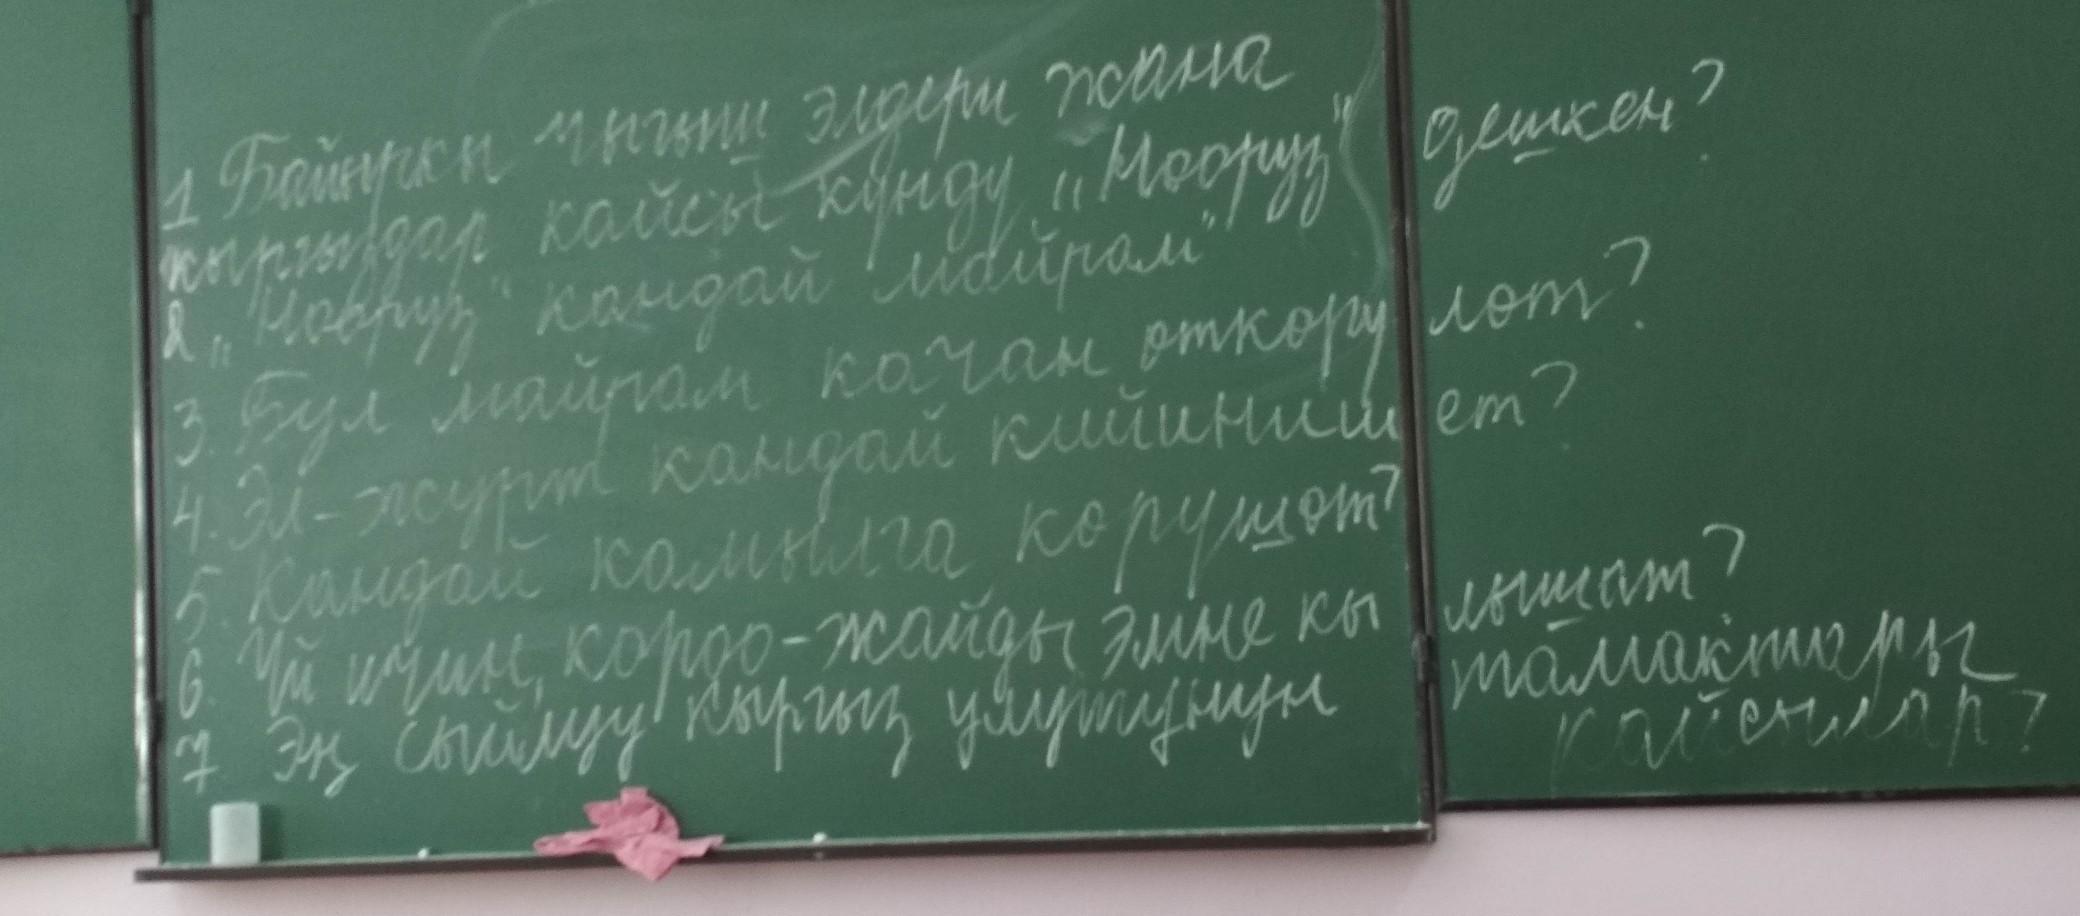 1 Байыркы чыгыш элдери жана
кыргыздар кайсы күндү „Нооруз" дешкен?
2 „Нооруз" кандай майрам"
3. Бул майрам качан өткөрүлөт?
4. Эл-журт кандай кийинишет?
5. Кандай камылга көрүшөт?
6. Үй ичин, короо-жайды эмне кылышат?
7. Эң сыймуу кыргыз улутунун тамактары
кайсылар?